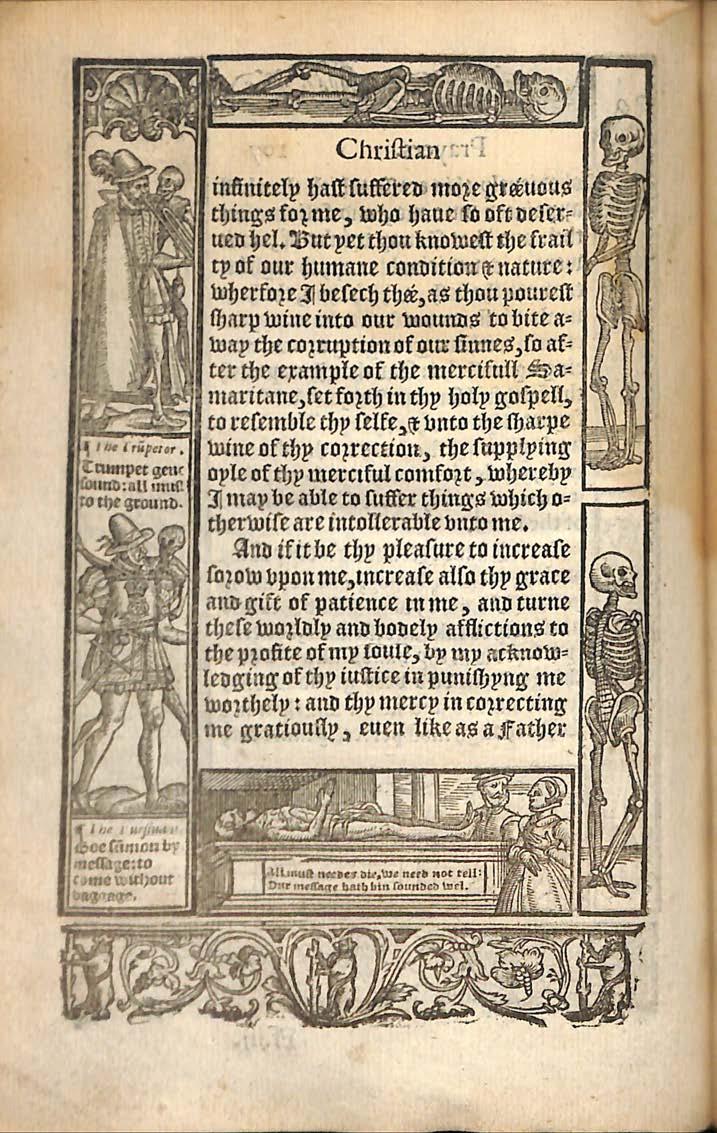 Christian
infinitely hast suffered more greeuous
things for me, who haue so oft deser=
ued hel. But yet thou knowest the frail
ty of our humane condition & nature:
wherfore I besech thee, as thou pourest
sharp wine into our wounds to bite a=
way the corruption of our sinnes, so af=
ter the example of the mercifull Sa=
maritane, set forth in thy holy gospell,
to resemble thy selfe, & vnto the sharpe
wine of thy correction, the supplying
oyle of thy merciful comfort, whereby
I may be able to suffer things which o=
therwise are intollerable vnto me.
And if it be thy pleasure to increase
sorow vpon me, increase also thy grace
and gift of patience in me, and turne
these worldly and bodely afflictions to
the profite of my soule, by my acknow=
ledging of thy iustice in punishyng me
worthely: and thy mercy in correcting
me gratiously, euen like as a Father
¶ The Trūpeter.
Trumpet geue
sound: all must
to the ground.
¶ The Pursiuant
Goe sūmon by
message: to
come without
baggage.
All must needes die, we need not tell:
Our message hath bin sounded wel.